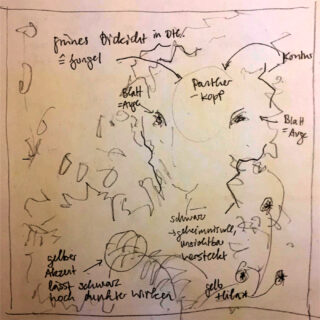 grünes Dickicht in
≙ Jungel
Panther
- Kopf
Kontur
Blatt
= Auge
Blatt
= Auge
schwarz
→ geheimnisvoll,
unsichtbar
versteckt
gelber
Akzent
lässt schwarz
noch dunkler wirken
gelb
+ lila